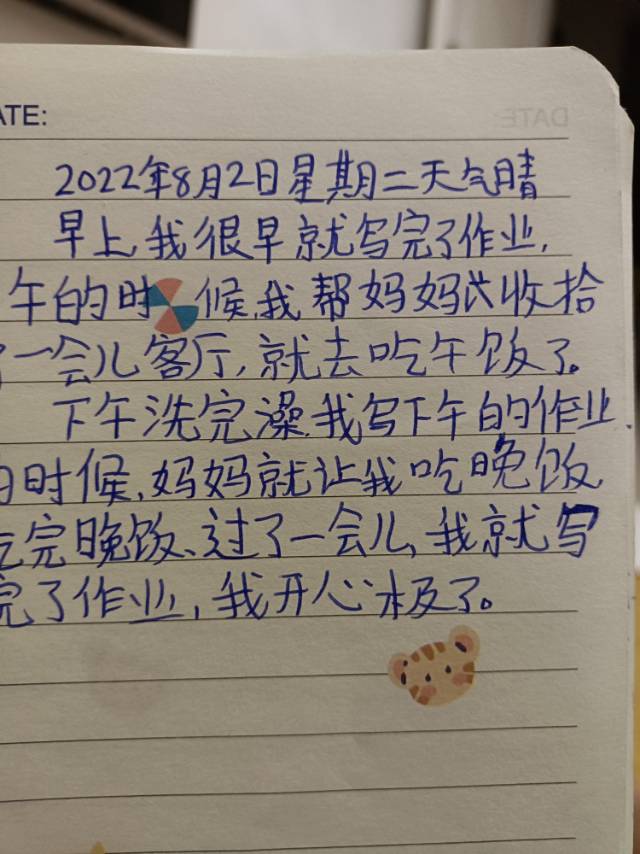 ATE:
DATE
2022年8月2日星期二天气晴
早上,我很早就写完了作业,
午的时候,我帮妈妈收拾
了一会儿客厅,就去吃午饭了。
下午洗完澡,我写下午的作业.
的时候,妈妈就让我吃晚饭
吃完晚饭、过了一会儿,我就写
完了作业,我开心极了。